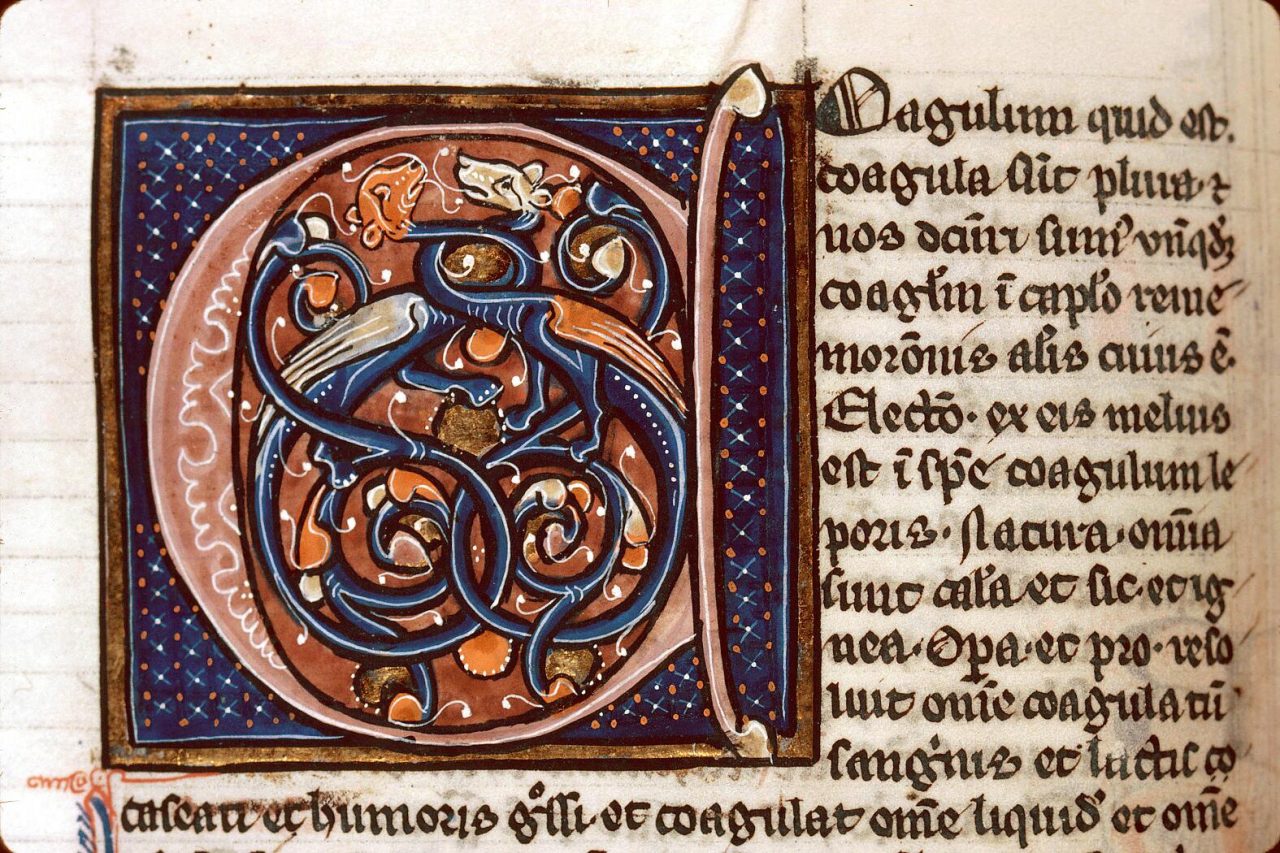 Coagulum quid est.
coagula sūt plura. ⁊
nos dcān̄ sumꝰ vn̄qͦꝫ
coagl̄m ī cap̄lo reme
morōnis al̓is cuiꝰ ē.
Electō. ex eis melius
est ī sp̄e coagulum le
poris. Natura. om̄ia
sunt cal̓a et sic. et ig
nea. Op̄a. et pro. reso
luit om̄e coagulatū
sang̓nis et lactis
caseati et humoris gͦssi. et coagulat om̄e liquid᾽ et om̄e